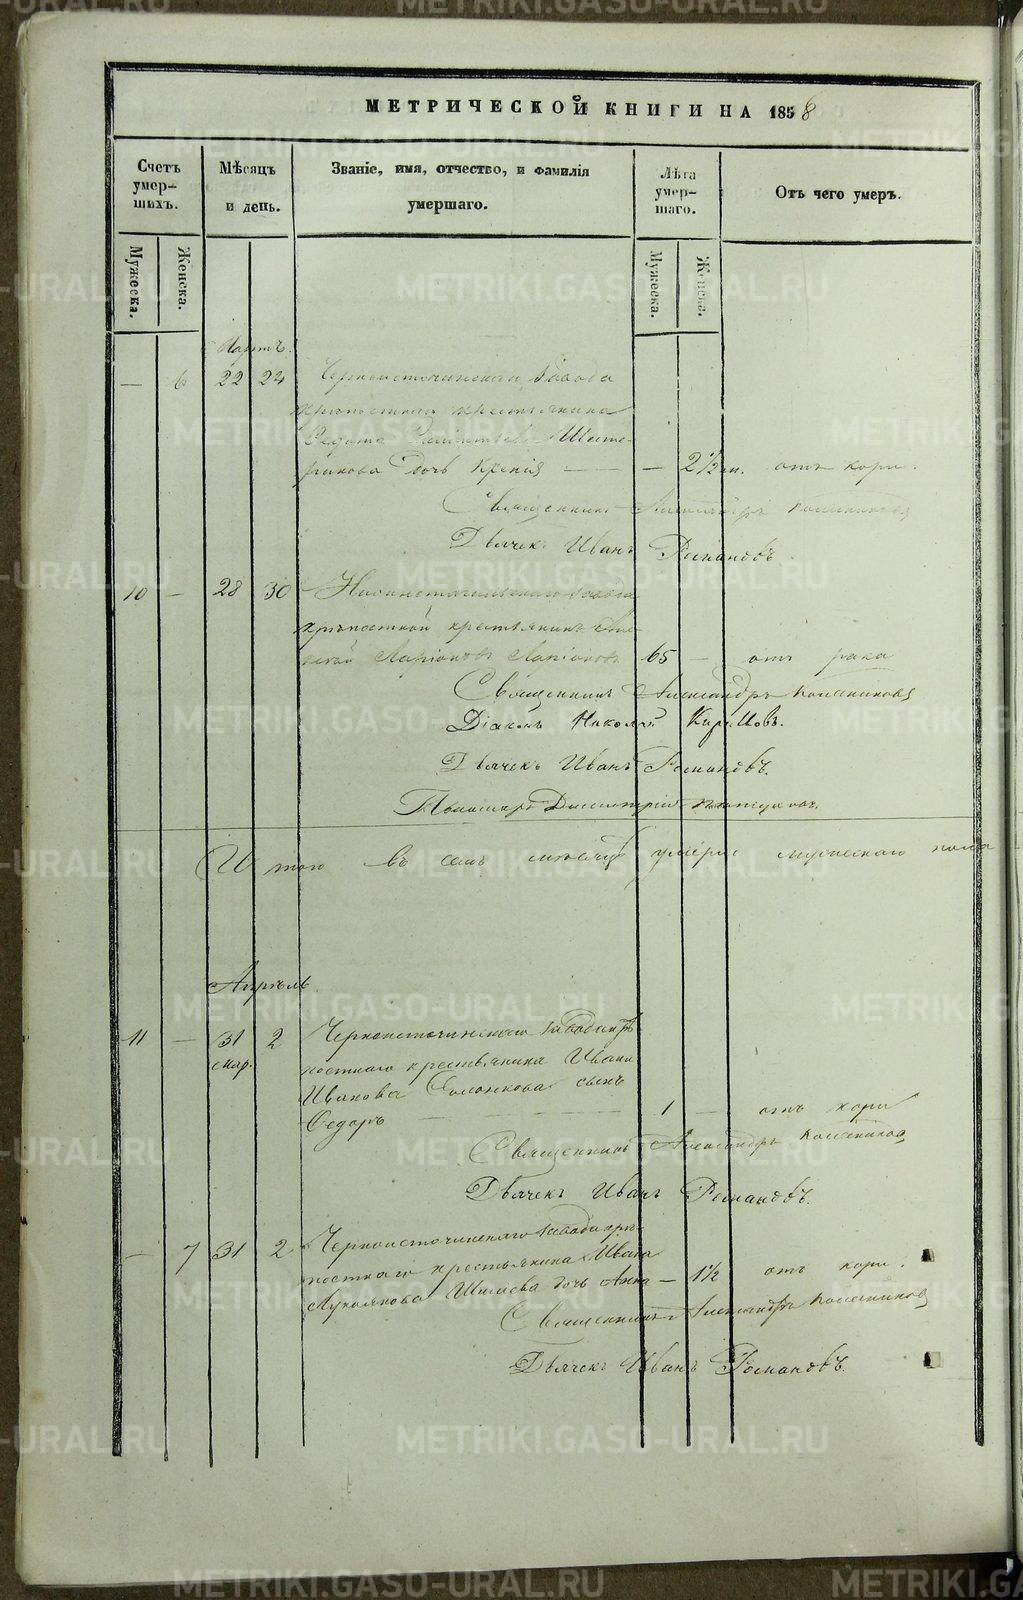 МЕТРИЧЕСКОЙ КНИГИ НА 1858
Счетъ умер-шихъ.
Мѣсяцъ и день.
Званіе, имя, отчество, и фамилія умершаго.
Лѣта умер-шаго.
Отъ чего умеръ.
Мужеска.
Женска.
Мужеска.
Женска.
Мартъ.
— 6 22 24 Черноисточинскаго завода
крѣпостнаго крестьянина
Федота
дочь — — 2 1/2 отъ кори.
Священникъ Александръ
Дьячекъ Иванъ Романовъ.
10 — 28 30 завода
крѣпостной крестьянинъ
Ларіоновъ 65 — отъ рака
Священникъ Александръ
Діаконъ Николай
Дьячекъ Иванъ Романовъ.
Пономарь Димитрій
Итого въ семъ мѣсяцѣ умерло мужескаго пола
Апрѣль.
11 — 31 2 Черноисточинскаго завода крѣ-
мар. постнаго крестьянина Ивана
Иванова сынъ
Федоръ — 1 — отъ кори
Священникъ Александръ
Дьячекъ Иванъ Романовъ.
— 7 31 2 Черноисточинскаго завода крѣ-
постнаго крестьянина Ивана
дочь Анна — 1 1/2 отъ кори.
Священникъ Александръ
Дьячекъ Иванъ Романовъ.
METRIKI.GASO-URAL.RU